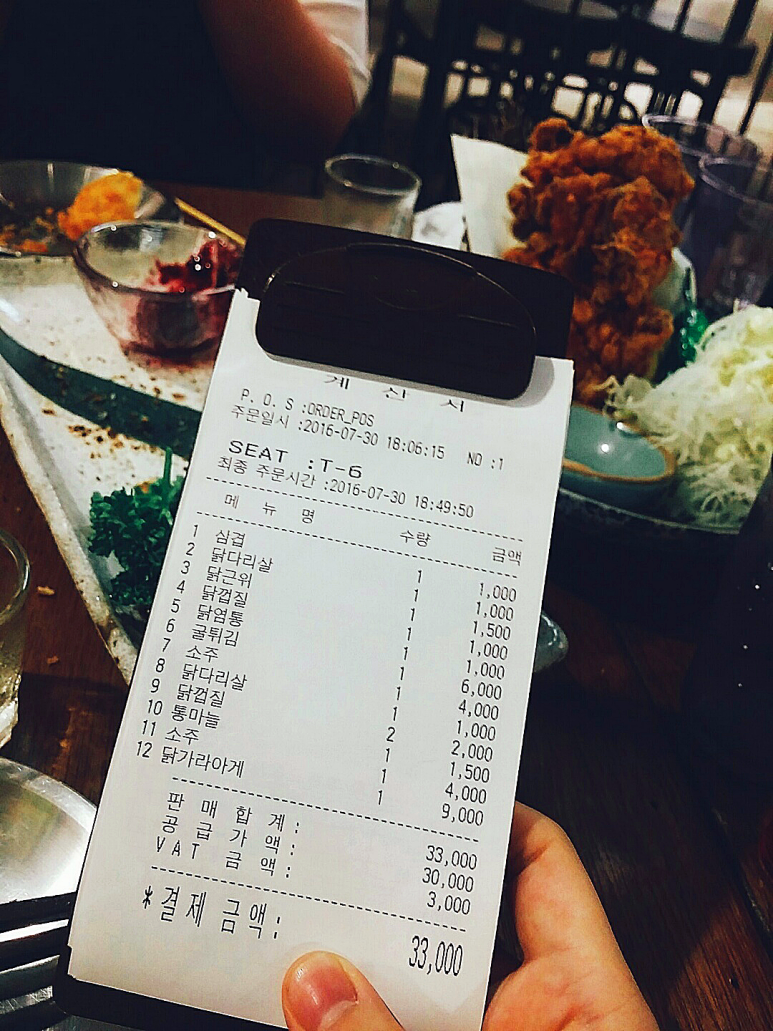 계 산 서
P. O. S :ORDER_POS
주문일시 :2016-07-30 18:06:15 NO :1
SEAT :T-6
최종 주문시간 :2016-07-30 18:49:50
메 뉴 명 수량 금액
1 삼겹 1 1,000
2 닭다리살 1 1,000
3 닭근위 1 1,500
4 닭껍질 1 1,000
5 닭염통 1 1,000
6 굴튀김 1 6,000
7 소주 1 4,000
8 닭다리살 1 1,000
9 닭껍질 2 2,000
10 통마늘 1 1,500
11 소주 1 4,000
12 닭가라아게 1 9,000
판 매 합 계 : 33,000
공 급 가 액 : 30,000
V A T 금 액 : 3,000
*결제 금액: 33,000